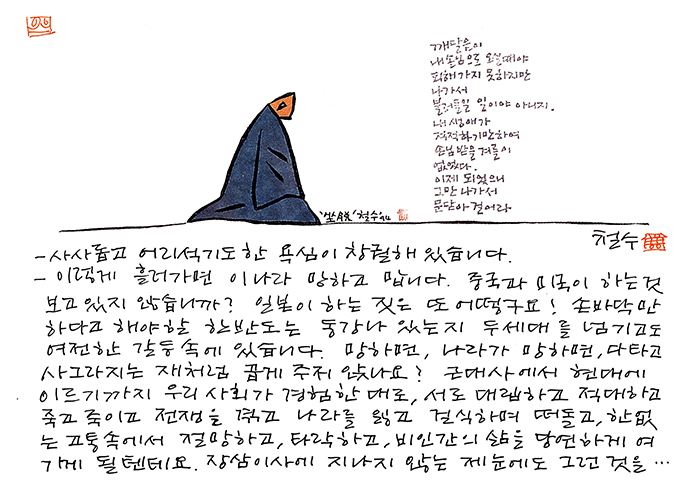 깨달음이
내 손님으로 오실 때야
피해가지 못하지만
나가서
불러들일 일이야 아니지.
내 생애가
적적하기만하여
손님 받을 겨를이
없었다.
이제 되었으니
그만 나가서
문닫아 걸어라
'坐脫' 철수 '94
철수
- 사사롭고 어리석기도한 욕심이 창궐해 있습니다.
- 이렇게 흘러가면 이나라 망하고 맙니다. 중국과 미국이 하는것
보고 있지 않습니까? 일본이 하는 짓은 또 어떻구요! 손바닥만
하다고 해야할 한반도는 동강나 있는지 두세대를 넘기고도
여전한 갈등속에 있습니다. 망하면, 나라가 망하면, 다타고
사그라지는 재처럼 곱게 주저 앉나요? 근대사에서 현대에
이르기까지 우리 사회가 경험한 대로, 서로 대립하고 적대하고
죽고 죽이고 전쟁을 겪고 나라를 잃고 걸식하며 떠돌고, 한없
는 고통속에서 절망하고, 타락하고, 비인간의 삶을 당연하게 여
기게 될텐데요. 장삼이사에 지나지 않는 제눈에도 그런 것을 …